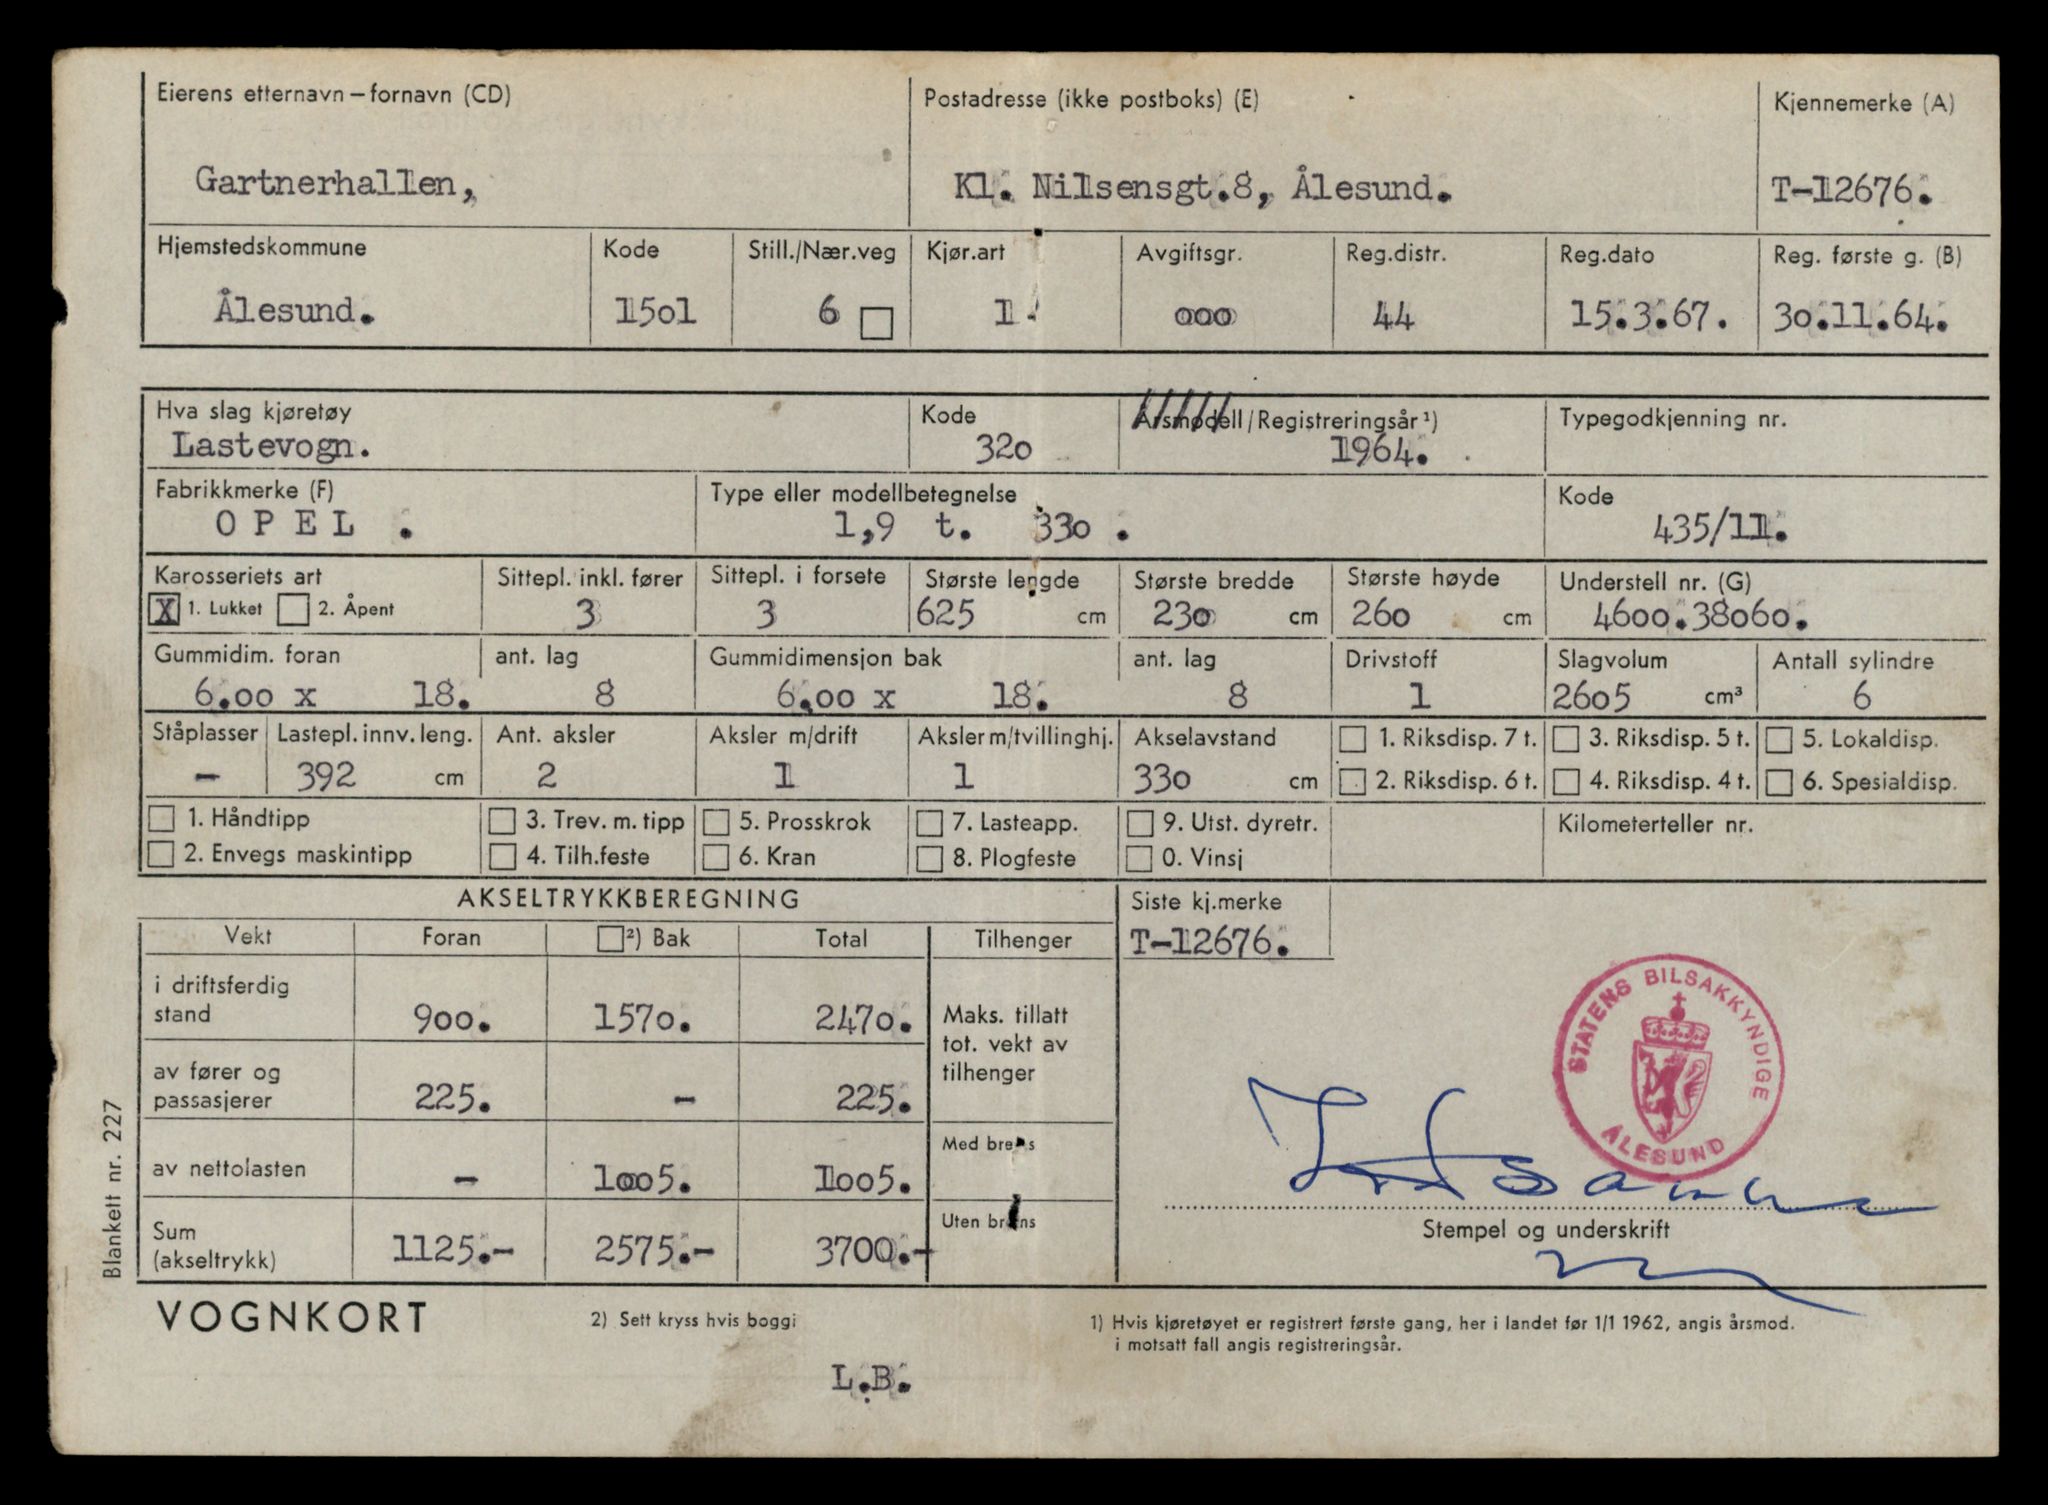 Eierens etternavn – fornavn (CD) Postadresse (ikke postboks) (E) Kjennemerke (A)
Gartnerhallen, Kl. Nilsensgt.8, Ålesund. T-12676.
Hjemstedskommune Kode Still./Nær.veg Kjør.art Avgiftsgr. Reg.distr. Reg.dato Reg. første g. (B)
Ålesund. 15o1 6 1. ooo 44 15.3.67. 3o.11.64.
Hva slag kjøretøy Kode Årsmodell/Registreringsår ¹)
Typegodkjenning nr.
Lastevogn. 32o 1964.
Fabrikkmerke (F) Type eller modellbetegnelse Kode
O P E L . 1,9 t. 33o . 435/11.
Karosseriets art Sittepl. inkl. fører Sittepl. i forsete Største lengde Største bredde Største høyde Understell nr. (G)
X 1. Lukket 2. Åpent 3 3 625 cm 23o cm 26o cm 46oo.38o6o.
Gummidim. foran ant. lag Gummidimensjon bak ant. lag Drivstoff Slagvolum Antall sylindre
6.oo x 18. 8 6.oo x 18. 8 1 26o5 cm³ 6
Ståplasser Lastepl. innv. leng. Ant. aksler Aksler m/drift Aksler m/tvillinghj. Akselavstand 1. Riksdisp. 7 t. 3. Riksdisp. 5 t. 5. Lokaldisp.
- 392 cm 2 1 1 33o cm 2. Riksdisp. 6 t. 4. Riksdisp. 4 t. 6. Spesialdisp.
1. Håndtipp 3. Trev. m. tipp 5. Prosskrok 7. Lasteapp. 9. Utst. dyretr. Kilometerteller nr.
2. Envegs maskintipp 4. Tilh.feste 6. Kran 8. Plogfeste 0. Vinsj
AKSELTRYKKBEREGNING Siste kj.merke
Vekt Foran ²) Bak Total Tilhenger T-12676.
i driftsferdig
stand 9oo. 157o. 247o. Maks. tillatt
tot. vekt av
tilhenger
av fører og
passasjerer 225. - 225.
Med brems
av nettolasten - 1oo5. 1oo5.
Uten brems
Sum
(akseltrykk) 1125.- 2575.- 37oo.-
STATENS BILSAKKYNDIGE
ÅLESUND
Stempel og underskrift
Blankett nr. 227
VOGNKORT 2) Sett kryss hvis boggi 1) Hvis kjøretøyet er registrert første gang, her i landet før 1/1 1962, angis årsmod.
i motsatt fall angis registreringsår.
L.B.